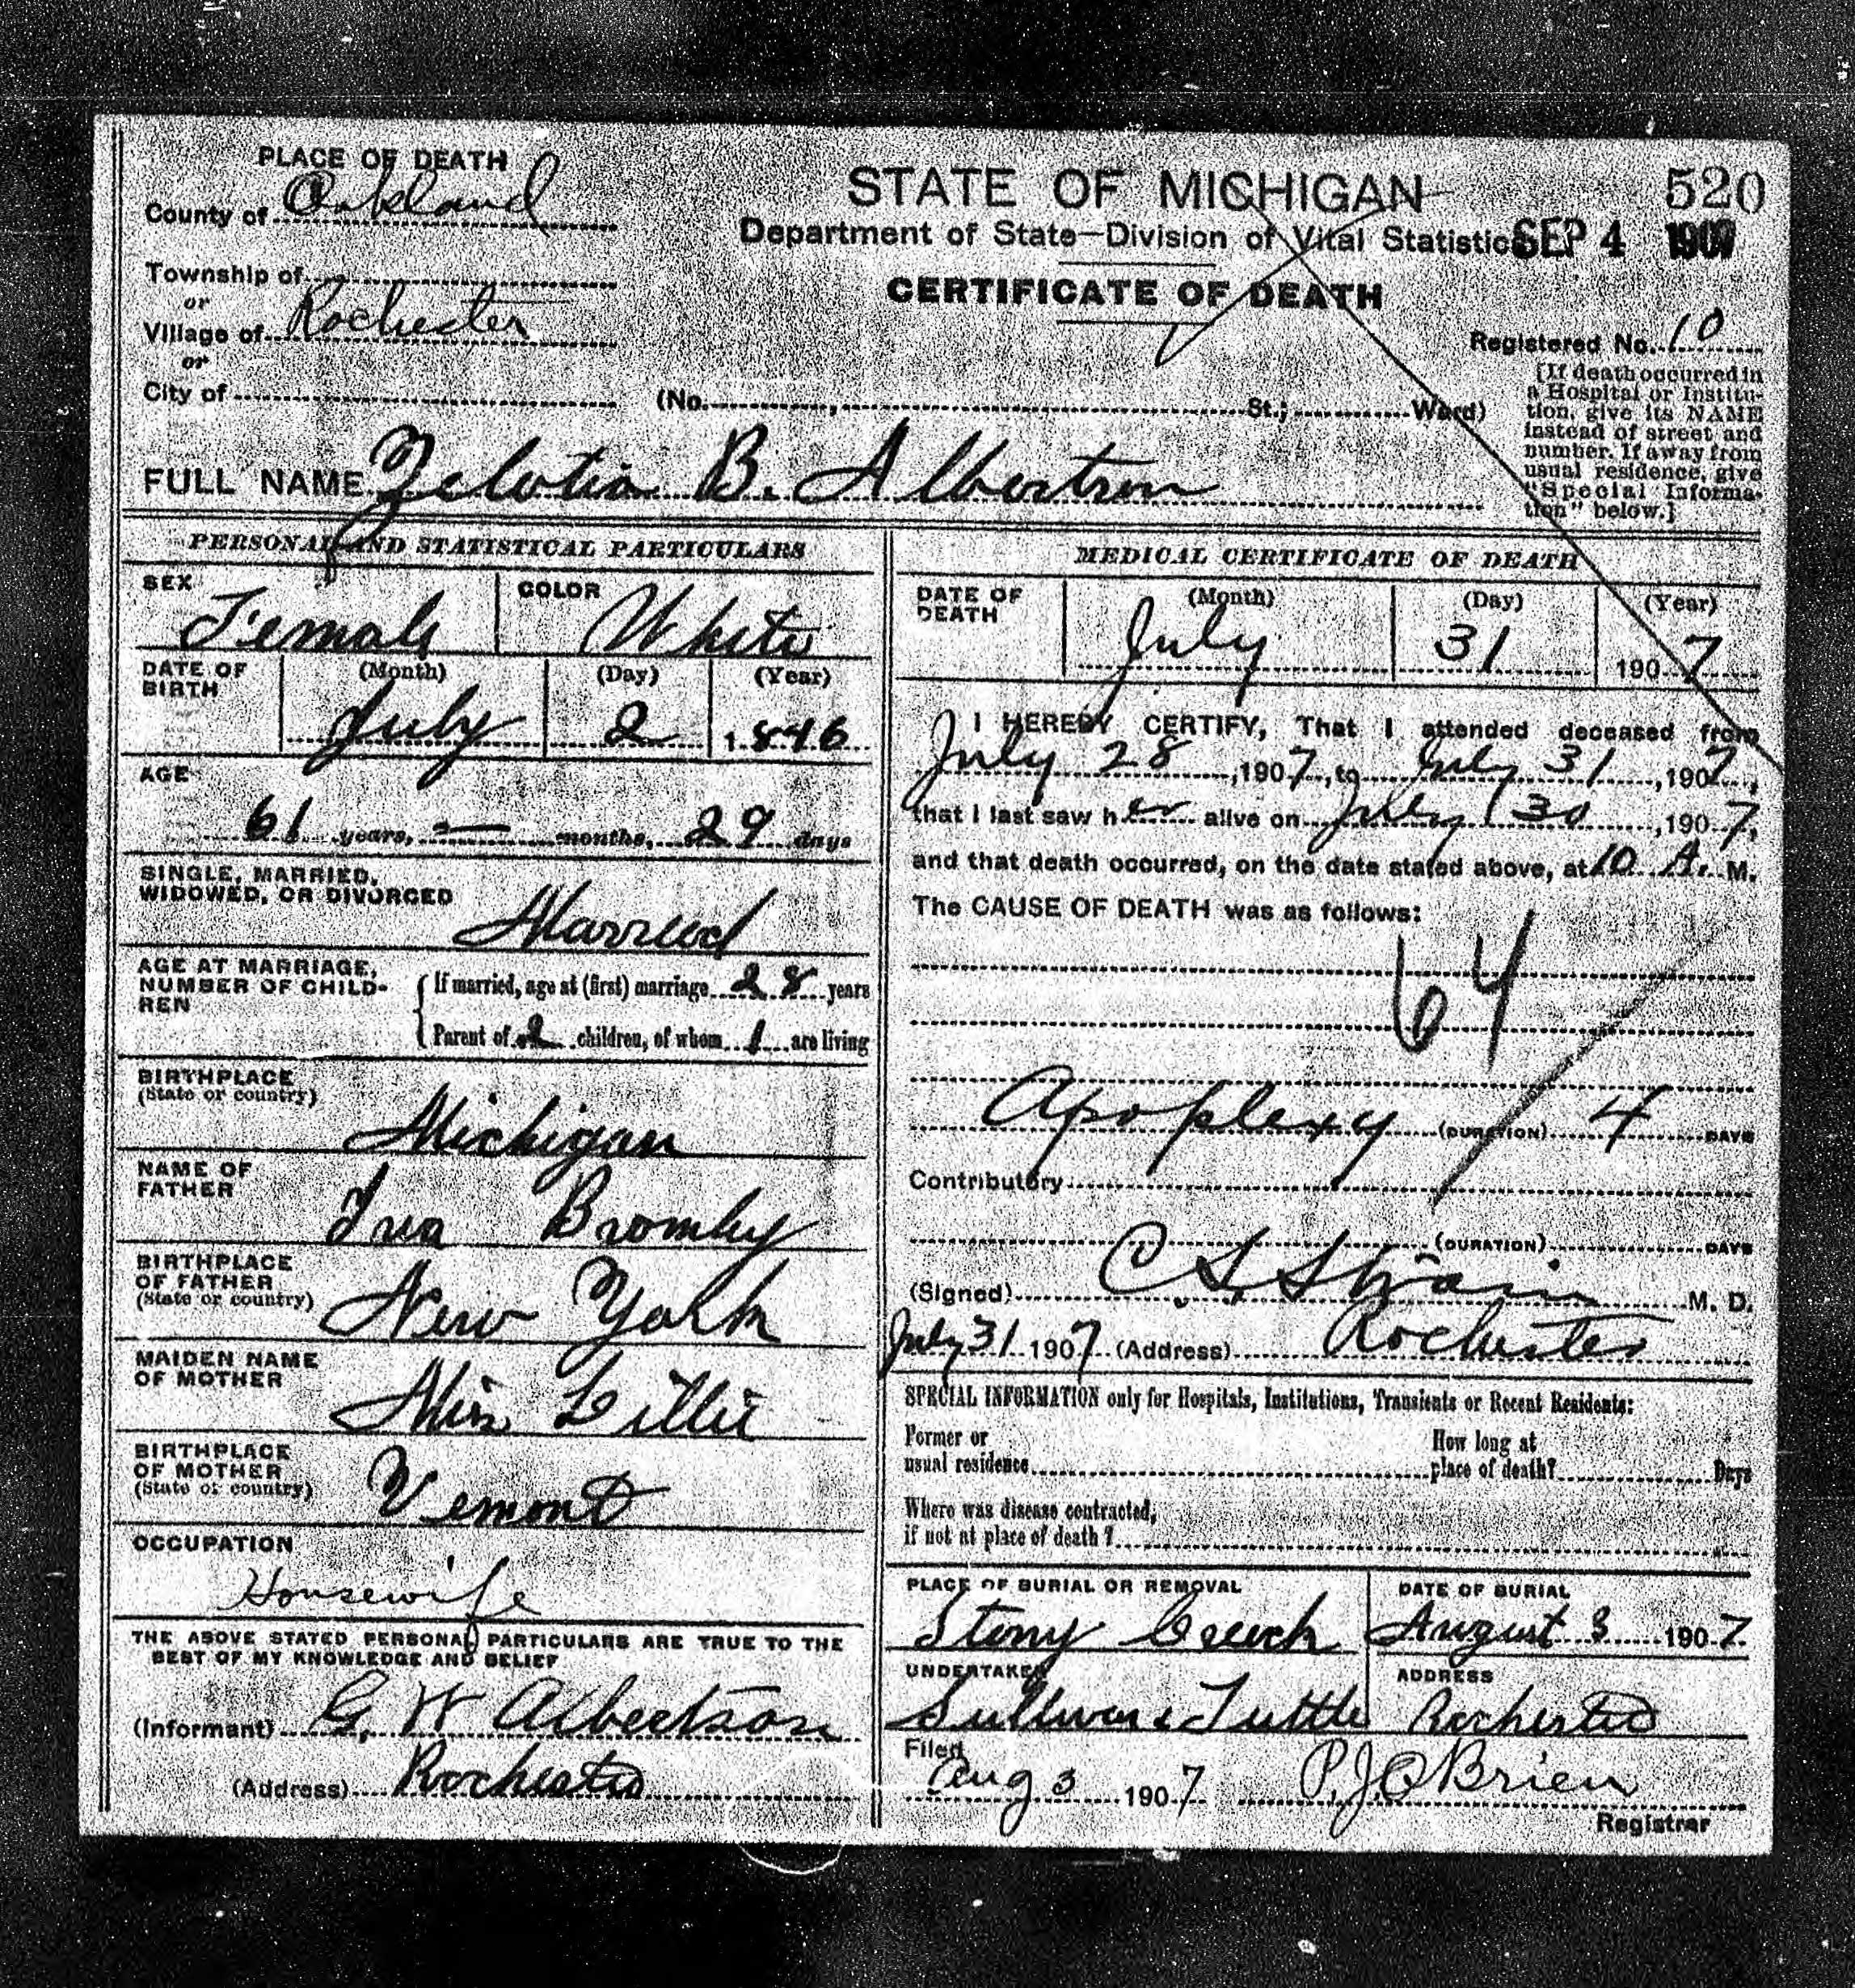 PLACE OF DEATH
County of Oakland
Township of
or
Village of Rochester
or
City of
STATE OF MICHIGAN
Department of State—Division of Vital Statistics
CERTIFICATE OF DEATH
520
SEP 4 1907
Registered No. 10
(No. , St.; Ward)
[If death occurred in
a Hospital or Institu-
tion, give its NAME
instead of street and
number. If away from
usual residence, give
"Special Informa-
tion" below.]
FULL NAME Zelotia B. Albertson
PERSONAL AND STATISTICAL PARTICULARS
SEX Female
COLOR White
DATE OF BIRTH
(Month) July
(Day) 2
(Year) 1846
AGE
61 years, — months, 29 days
SINGLE, MARRIED,
WIDOWED, OR DIVORCED
Married
AGE AT MARRIAGE,
NUMBER OF CHILD-
REN
If married, age at (first) marriage 28 years
Parent of 2 children, of whom 1 are living
BIRTHPLACE
(State or country)
Michigan
NAME OF
FATHER
Ira Bromley
BIRTHPLACE
OF FATHER
(State or country)
New York
MAIDEN NAME
OF MOTHER
Miss Lillie
BIRTHPLACE
OF MOTHER
(State or country)
Vemont
OCCUPATION
Housewife
THE ABOVE STATED PERSONAL PARTICULARS ARE TRUE TO THE
BEST OF MY KNOWLEDGE AND BELIEF
(Informant) G. W Albertson
(Address) Rochester
MEDICAL CERTIFICATE OF DEATH
DATE OF DEATH
(Month) July
(Day) 31
(Year) 1907
I HEREBY CERTIFY, That I attended deceased from
July 28, 1907, to July 31, 1907,
that I last saw her alive on July 30, 1907,
and that death occurred, on the date stated above, at 10 A. M.
The CAUSE OF DEATH was as follows:
64
Apoplexy (DURATION) 4 DAYS
Contributory
(DURATION) DAYS
(Signed) C S Strain M. D.
July 31 1907 (Address) Rochester
SPECIAL INFORMATION only for Hospitals, Institutions, Transients or Recent Residents:
Former or
usual residence
How long at
place of death? Days
Where was disease contracted,
if not at place of death?
PLACE OF BURIAL OR REMOVAL
Stony Creech
DATE OF BURIAL
August 3 1907
UNDERTAKER
Sullivan & Tuttle
ADDRESS
Rochester
Filed
Aug 3 1907 P.J. O Brien
Registrar